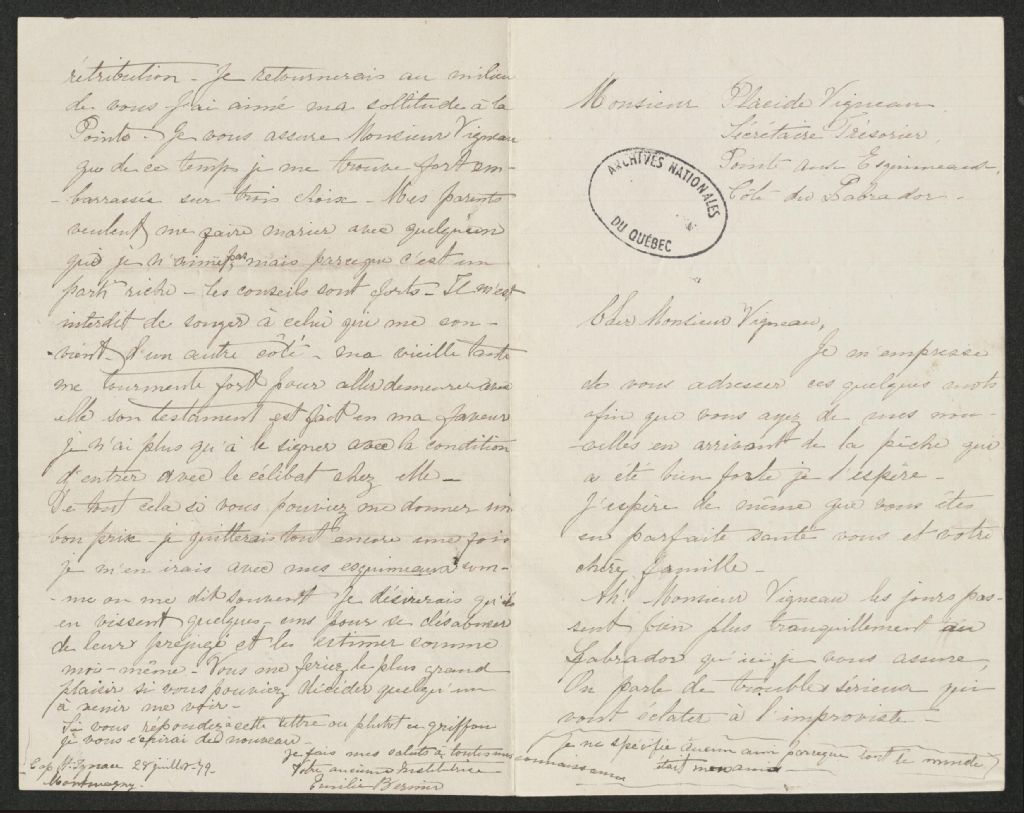 Monsieur Placide Vigneau
Sécrétaire Trésorier,
Pointe aux Esquimeaux,
Côte du Labrador -
ARCHIVES NATIONALES
DU QUÉBEC
Cher Monsieur Vigneau,
Je m'empresse
de vous adresser ces quelques mots
afin que vous ayez de mes nou-
-velles en arrivant de la pêche qui
a été bien forte je l'espère -
J'espère de même que vous êtes
en parfaite santé vous et votre
chère famille -
Ah! Monsieur Vigneau les jours pas-
sent bien plus tranquillement au
Labrador qu'ici je vous assure,
On parle de troubles sérieux qui
vont éclater à l'improviste -
rétribution - Je retournerais au milieu
de vous j'ai aimé ma sollitude à la
Pointe - Je vous assure Monsieur Vigneau
que de ce temps je me trouve fort em-
-barrassée sur trois choix - Mes parents
veulent me faire marier avec quelqu'un
que je n'aime pas, mais parceque c'est un
parti riche - les conseils sont forts - Il m'est
interdit de songer à celui qui me con-
-vient - D'un autre côté - ma vieille tante
me tourmente fort pour aller demeurer avec
elle son testament est fait en ma faveur
je n'ai plus qu'à le signer avec la condition
d'entrer avec le célibat chez elle -
De tout cela si vous pouviez me donner un
bon prix - je quitterais tout encore une fois
je m'en irais avec mes esquimeaux com-
-me on me dit souvent Je désirerais qu'ils
en vissent quelques-uns pour se désabuser
de leur préjugé et les estimer comme
moi-même - Vous me feriez le plus grand
plaisir si vous pouviez décider quelqu'un
à venir me voir -
Si vous répondez à cette lettre ou plutôt ce griffon
je vous écrirai de nouveau -
je fais mes saluts à toutes mes connaissances
Votre ancienne Institutrice
Emilie Bernier
Cap St Ignace 28 juillet - 79 -
Montmagny -
je ne spécifie aucun ami parceque tout le monde
était mon ami -